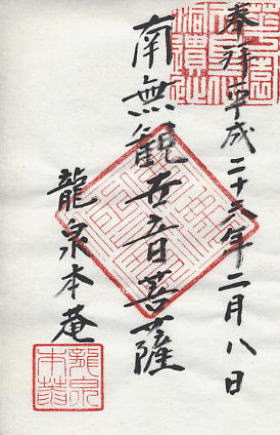 奉拝 平成二十六年二月八日
南無觀世音菩薩
龍泉本庵
龍泉本菴